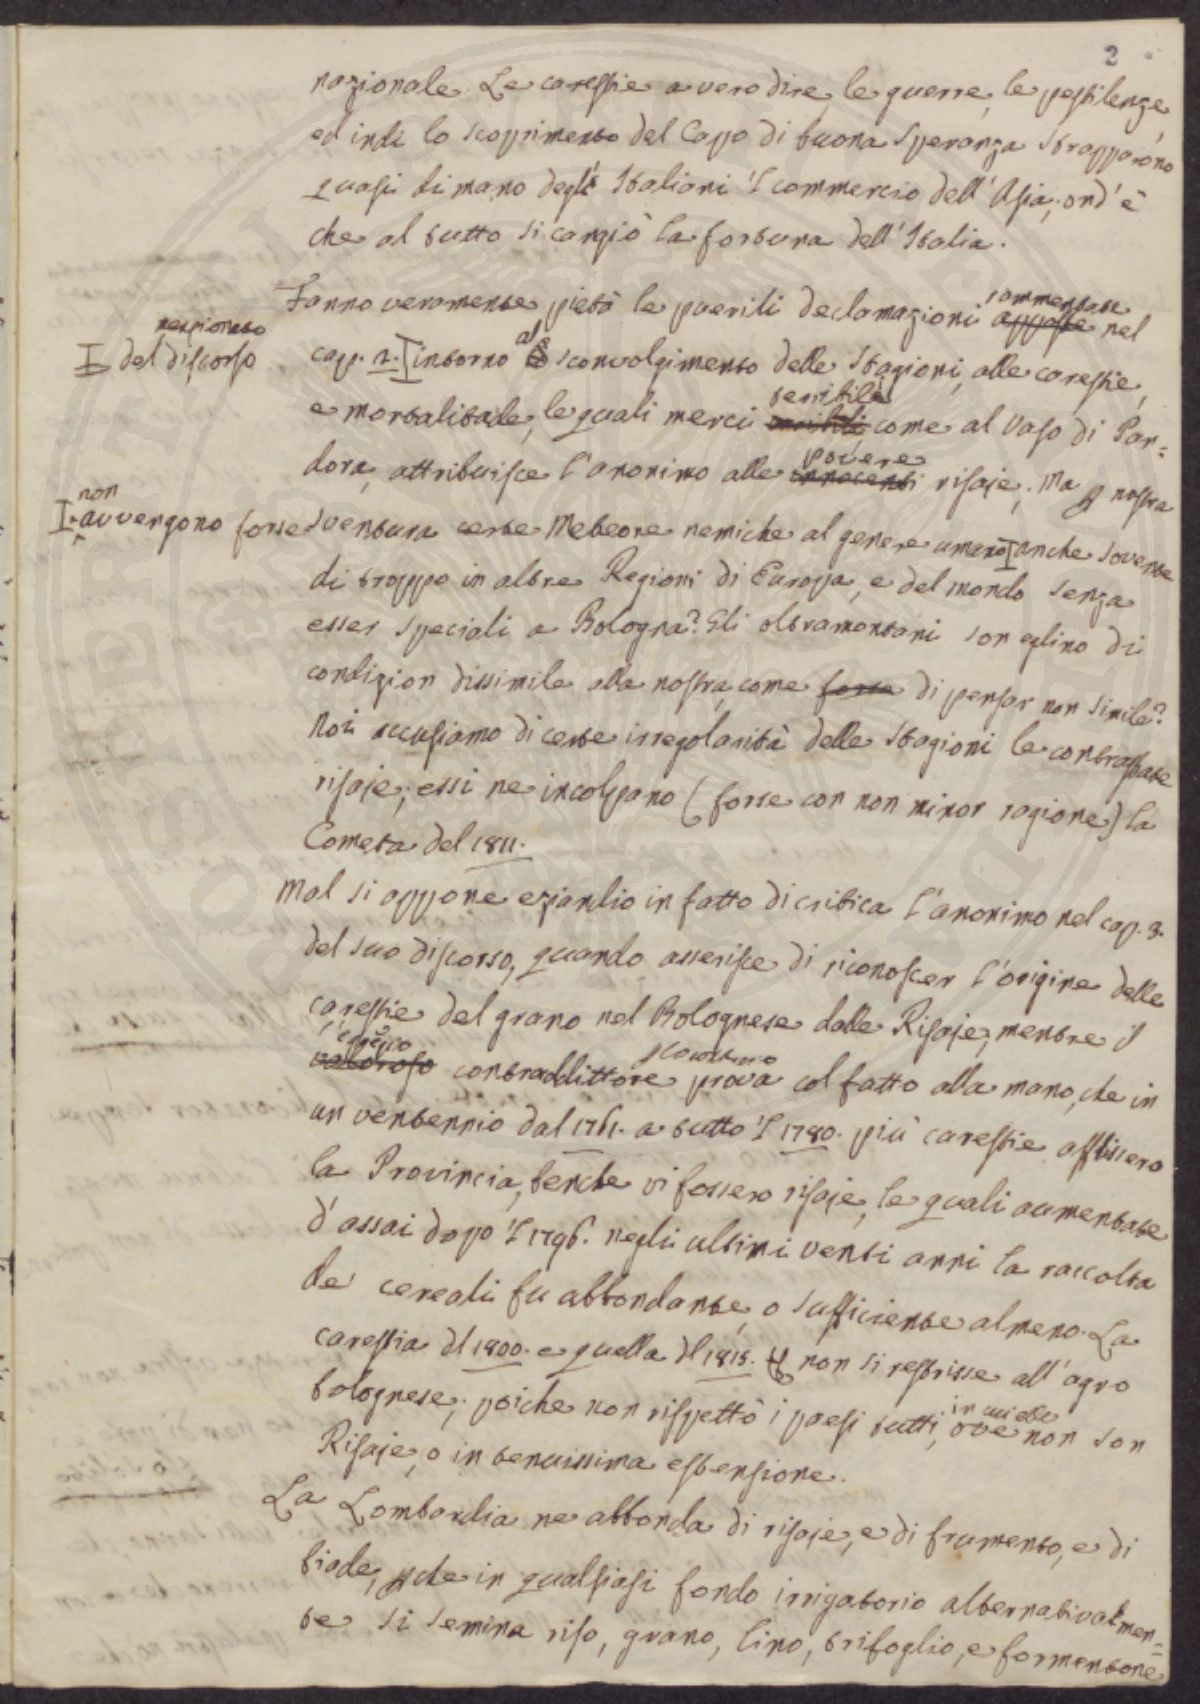 2
nazionale. Le carestie a vero dire, le guerre, le pestilenze,
ed indi lo scoprimento del Capo di buona Speranza strapparono
quasi di mano degl' Italiani 'l commercio dell' Asia, ond' è
che al tutto si cangiò la fortuna dell' Italia.
Fanno veramente pietà le puerili declamazioni apposte nel
rammentate
nel pionato
del discorso
cap. 2. intorno al sconvolgimento delle Stagioni, alle carestie,
e mortalitade, le quali merci come al Vaso di Pan=
terribile
dora, attribuisce l'anonimo alle innocenti risaje. Ma p nostra
povere
non
avvengono forse
sventura certe Meteore nemiche al genere umano anche sovente
di troppo in altre Regioni di Europa, e del mondo senza
esser speciali a Bologna? Gli oltramontani son eglino di
condizion dissimile alla nostra, come forse di pensar non simile?
Noi accusiamo di certe irregolarità delle Stagioni le contrastate
risaje; essi ne incolpano (forse con non minor ragione) la
Cometa del 1811.
Mal si appone eziandio in fatto di critica l'anonimo nel cap. 3.
del suo discorso, quando asserisce di riconoscer l'origine delle
carestie del grano nel Bolognese dalle Risaje; mentre il
egregio
valoroso contraddittore prova col fatto alla mano, che in
un ventennio dal 1761. a tutto 'l 1780. più carestie afflissero
la Provincia, benche vi fossero risaje, le quali aumentate
d'assai dopo 'l 1796. negli ultimi venti anni la raccolta
de' cereali fu abbondante, o sufficiente almeno. La
carestia del 1800. e quella del 1815. non si restrisse all' agro
bolognese; poiche non rispettò i paesi tutti, ove non son
in cui
Risaje, o in tenuissima estensione.
La Lombardia ne abbonda di risaje, e di frumento, e di
biade, pche in qualsiasi fondo irrigatorio alternativamen=
te si semina riso, grano, lino, trifoglio, e formentone